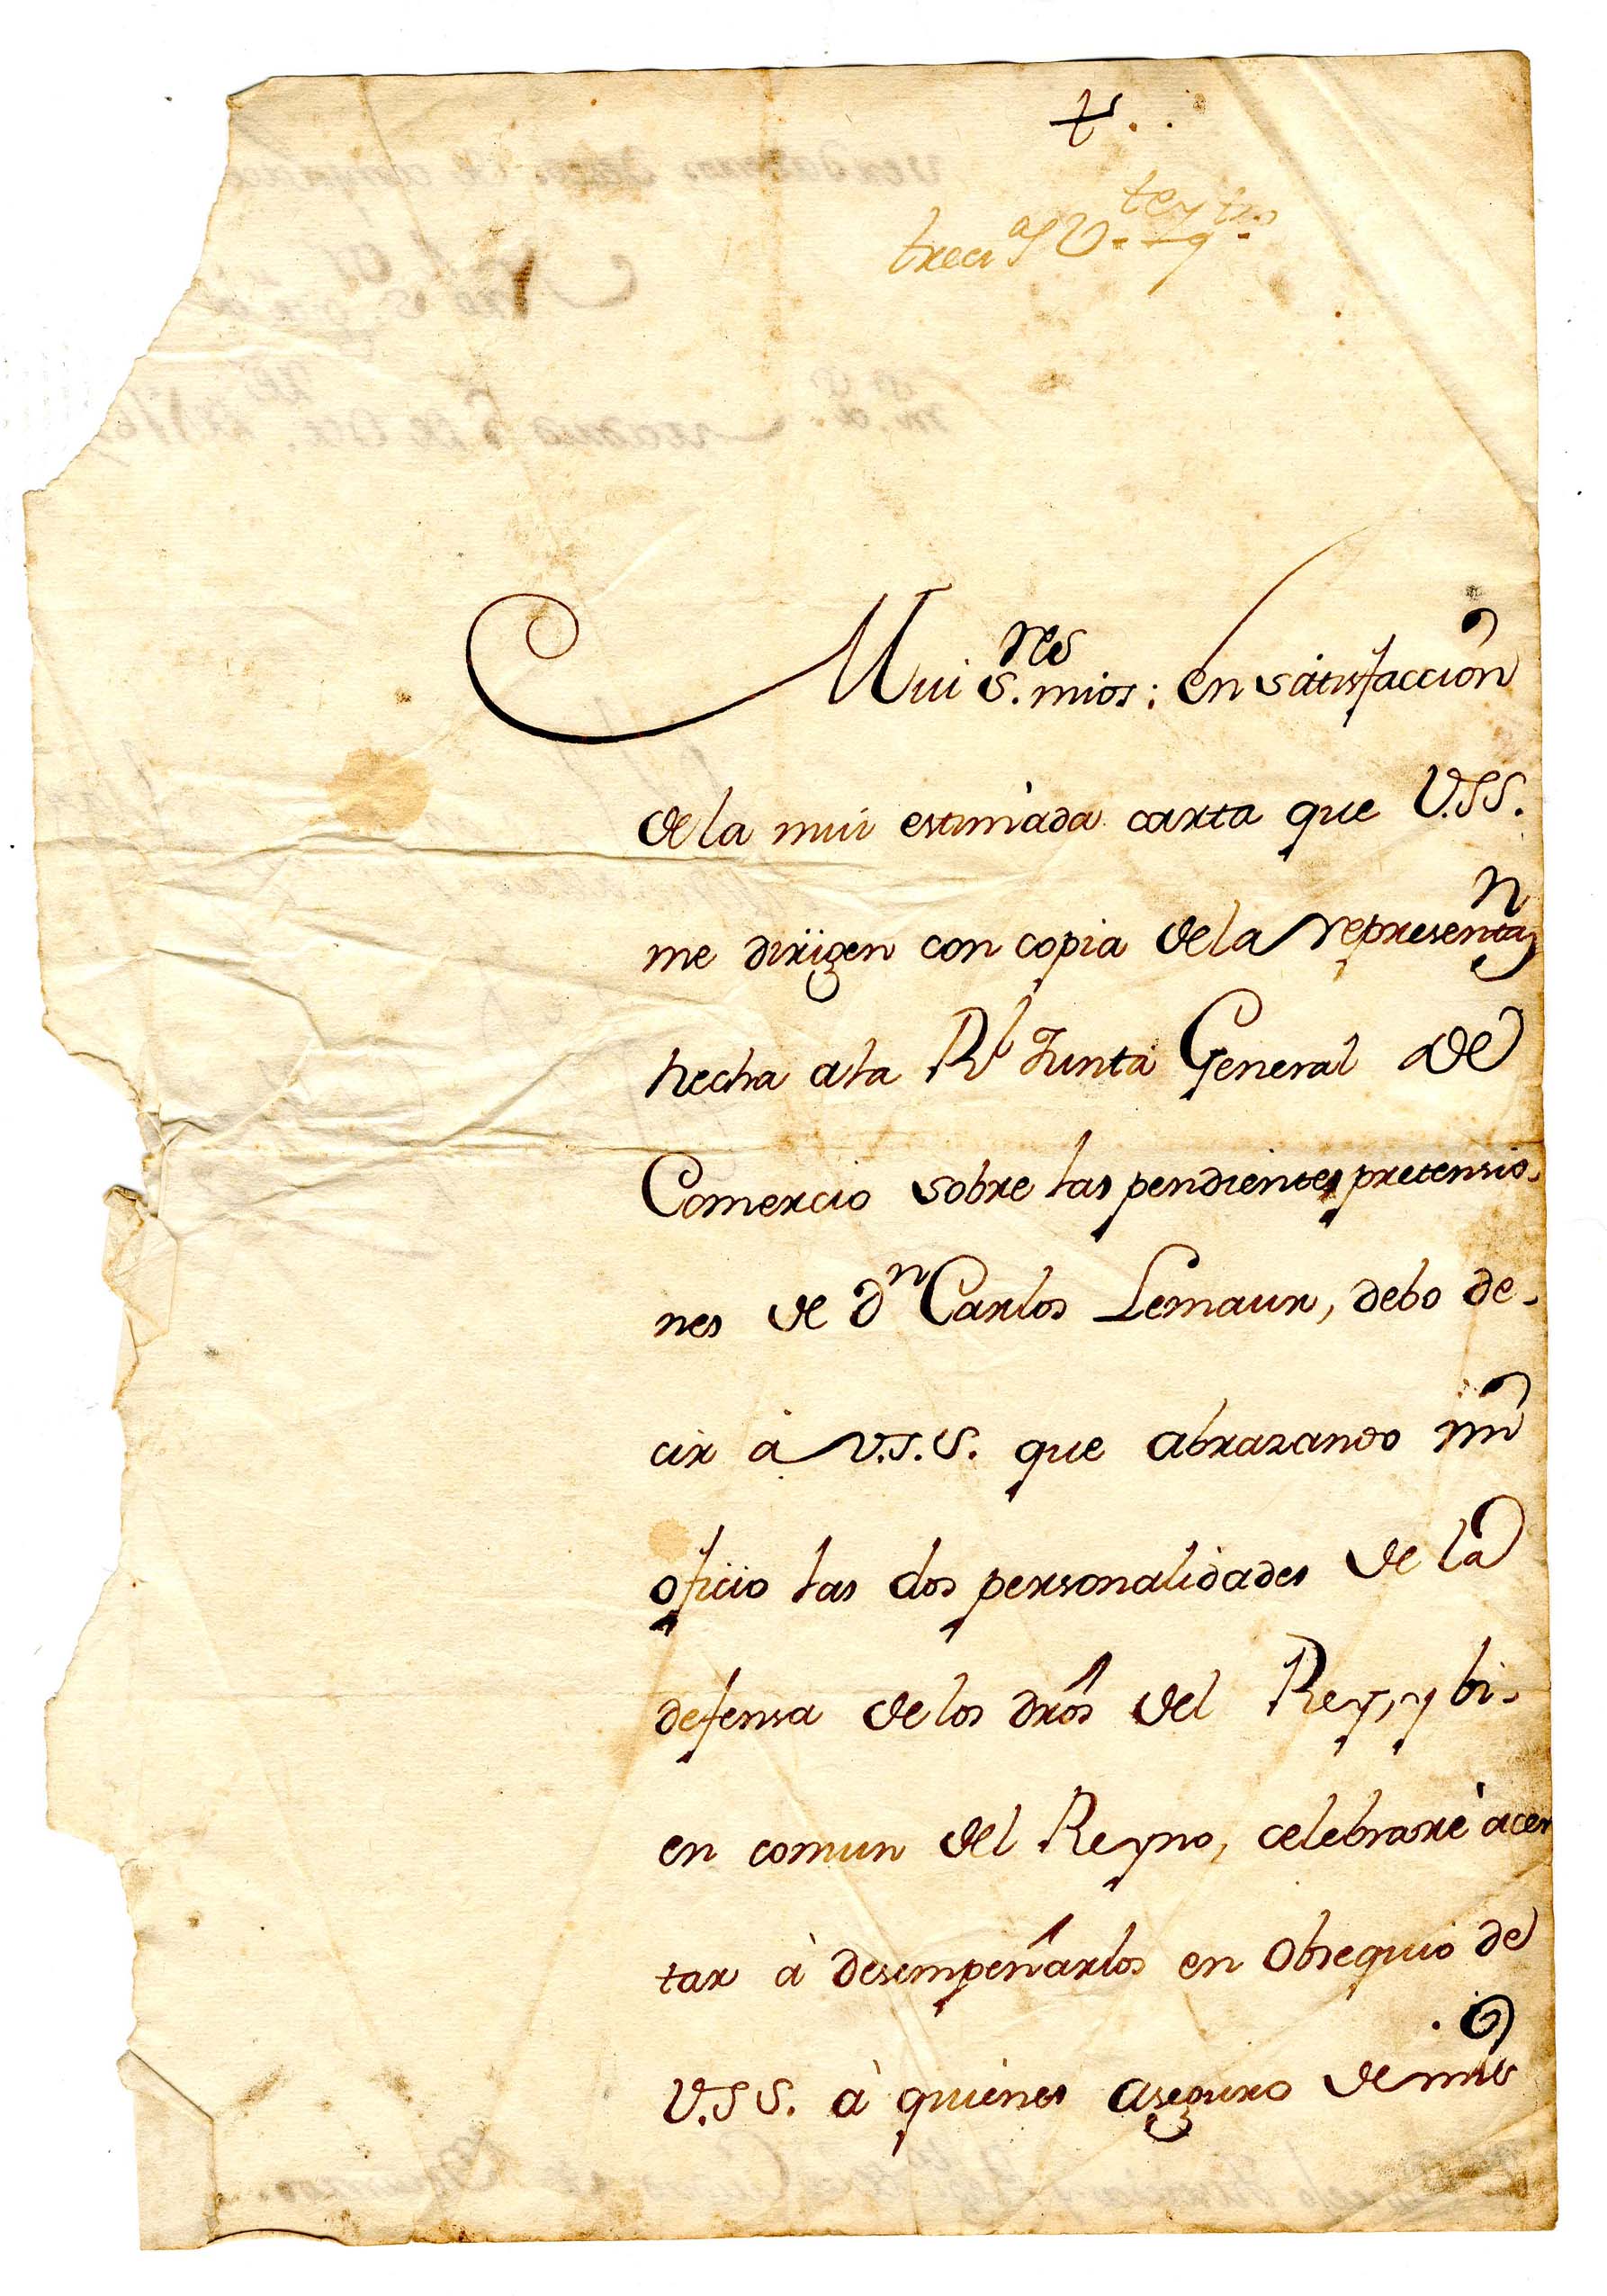 Mui S.res mios: En satisfacción
de la mui estimada carta que V.SS.
me dirigen con copia de la representaz.n
hecha a la Rl Junta General de
Comercio sobre las pendientes pretensio-
nes de Dn Carlos Lemaur, debo de-
cir à V.S.S. que abrazando mi
oficio las dos personalidades de la
defensa de los dros del Rey, y bi-
en comun del Reyno, celebrarè acer
tar à desempeñarlos en obsequio de
V.SS. à quienes aseguro de mis